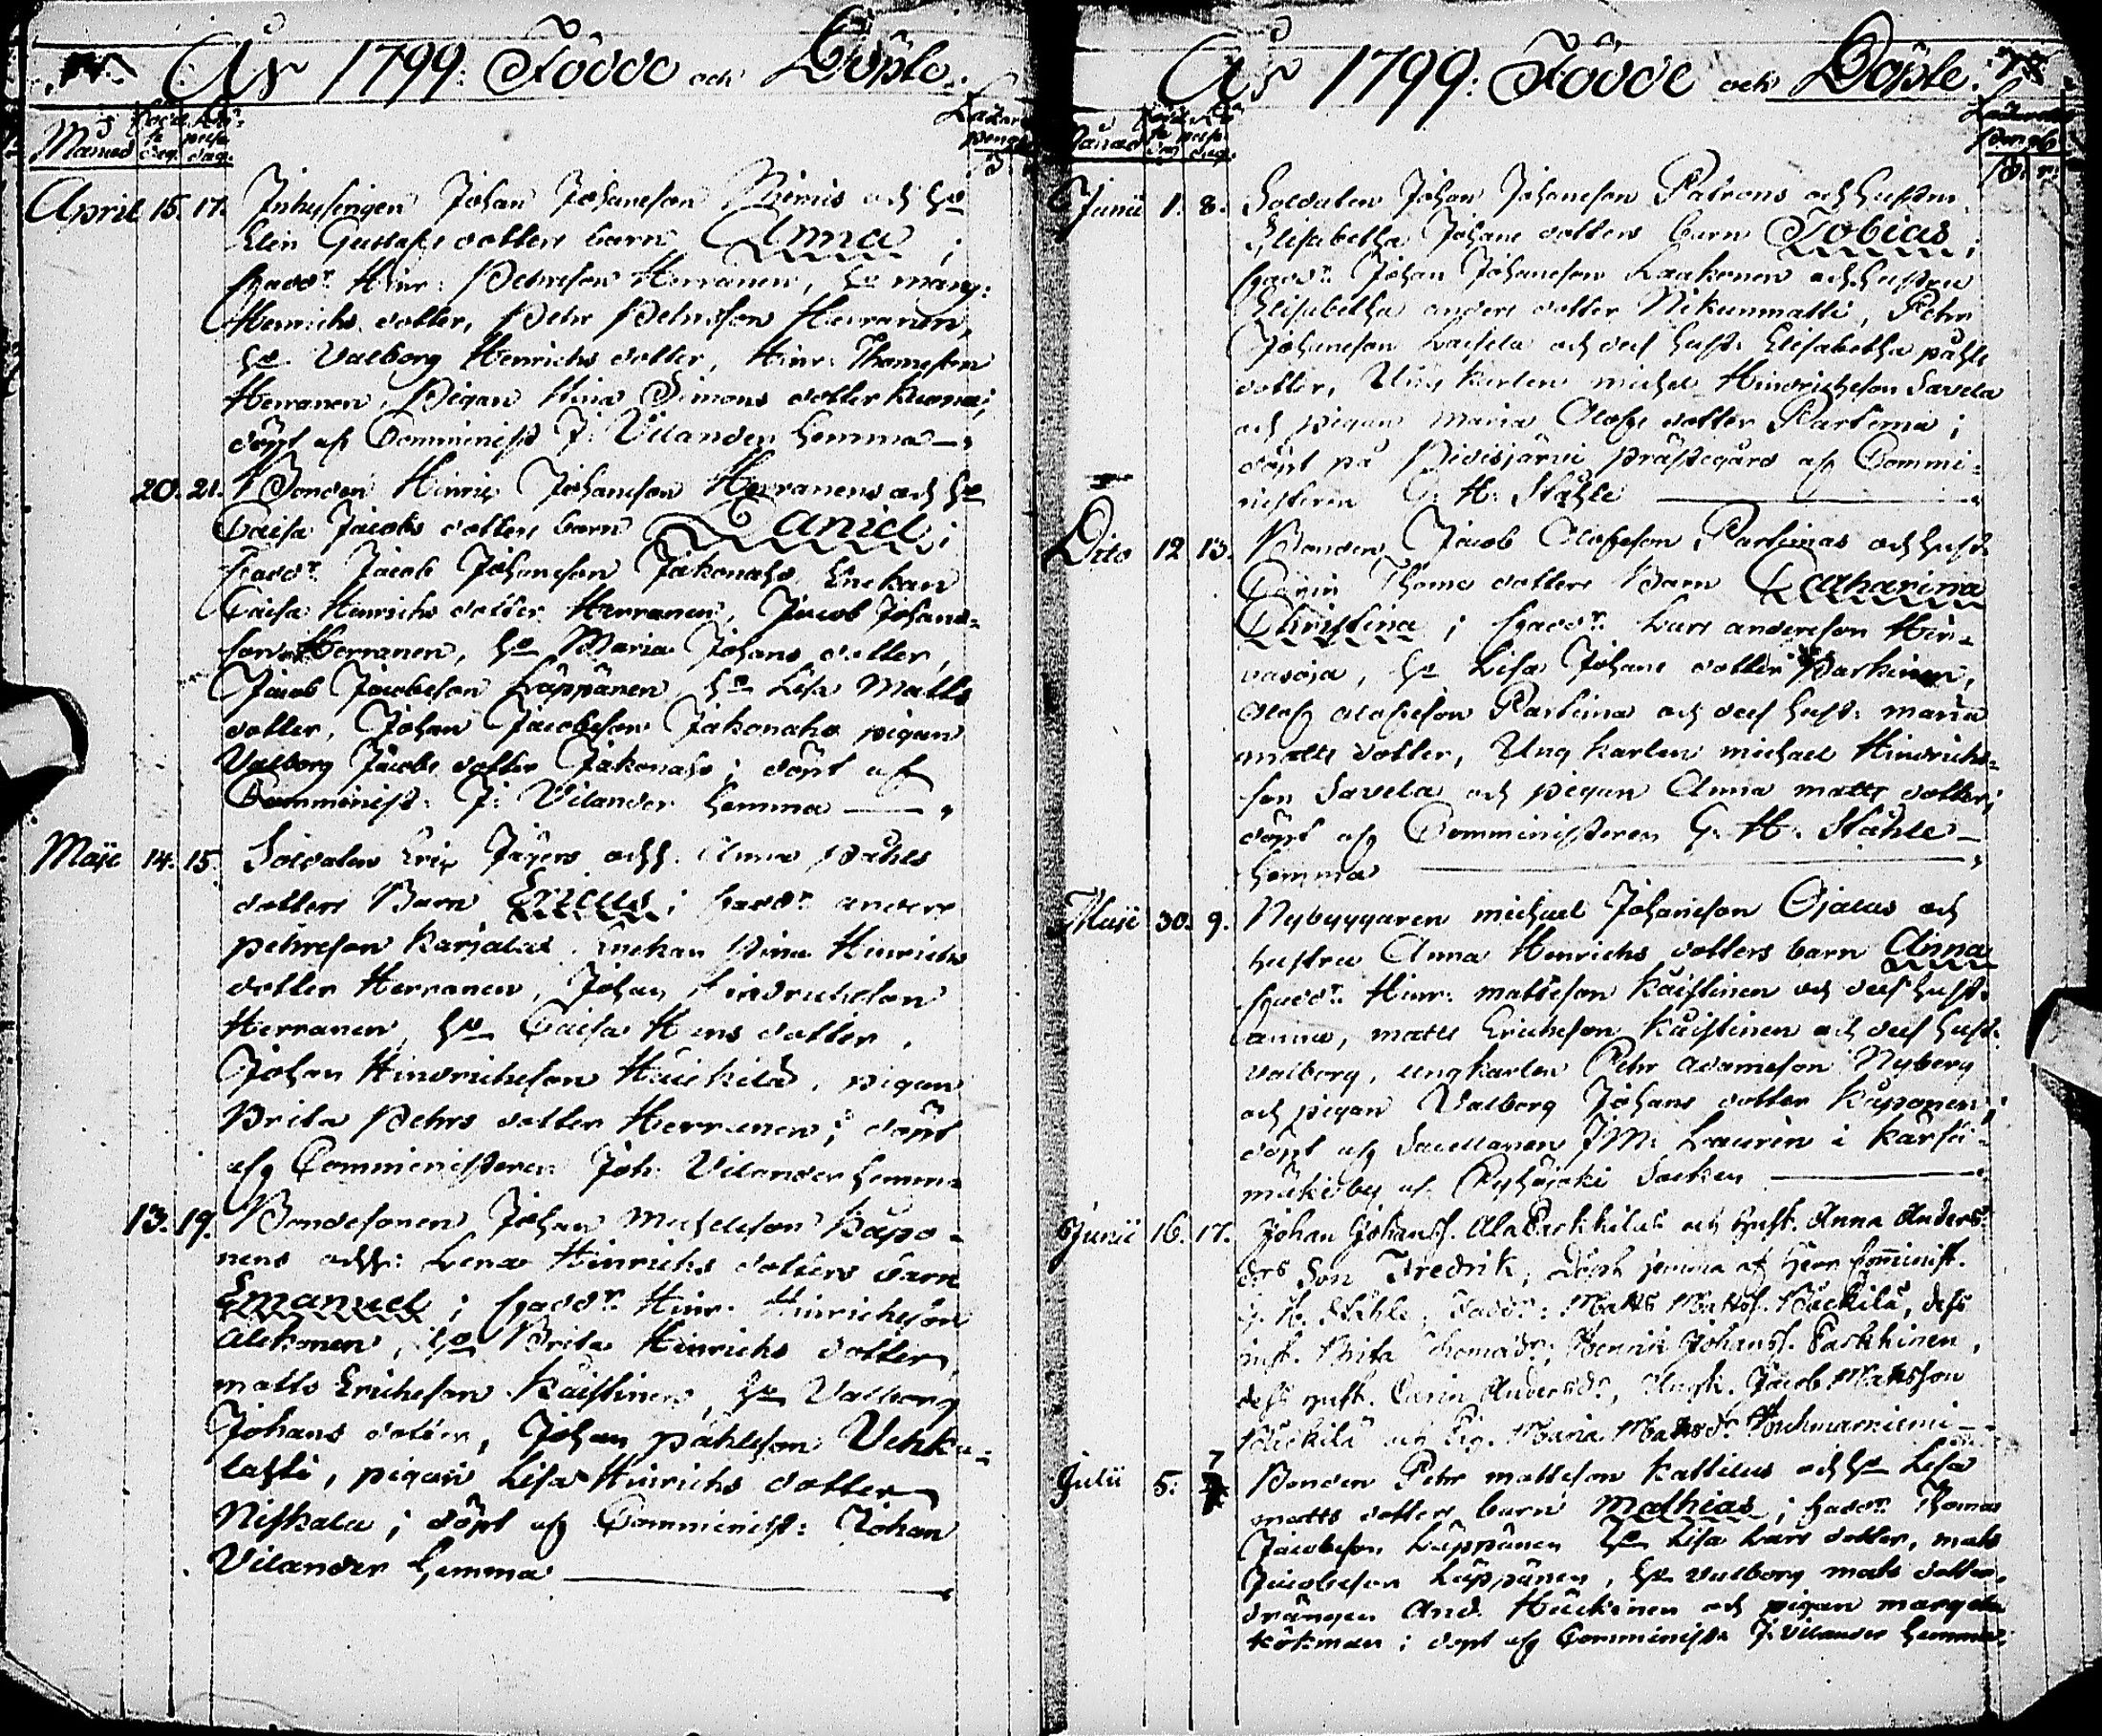 År 1799. Födde och Döpte.
Månad
April 15. 17. Inhysingen Johan Johansson Niemis och H:o
Elin Gustafs dotters barn Anna;
Fadd:r Hinr: Pehrsson Herranen, H:o marg:
Henrichs dotter, Pehr Pehrsson Herranen,
H:o Valborg Henrichs dotter, Hinr: Thomesson
Herranen, Pigan Stina Simons dotter
döpt af Comminist J: Vilander hemma
20. 21. Bonden Hinric Johansson Herranens och H:o
Caisa Jacobs dotters barn Daniel;
Fadd:r Jacob Johansson Jakonaho Enekan
Caisa Henrichs dotter Herranen, Jacob Johans-
son Herranen, H:o Maria Johans dotter,
Jacob Jacobsson Läppänen H:o Lisa Matts
dotter, Johan Jacobsson Jakonaho pigan
Valborg Jacobs dotter Jakonaho; döpt af
Comminist: J: Vilander hemma
Maje 14. 15. Soldaten Eric Jägers och h. Anna Påhls
dotters Barn Eneus; Fadd:r anders
pehrsson Karjalas Enekan Stina Henrichs
dotter Herranen, Johan Hindrichsson
Herranen H:o Caisa Hens dotter,
Johan Hindrichsson Häickilä, pigan
Brita Pehrs dotter Herranen; döpt
af Comministeren Joh: Vilander hemma
13. 19. Bondesonen Johan Michelsson Käpo-
nens och h: Lena Hinrichs dotters barn
Emanuel; Fadd:r Hinr: Hinrichsson
Alekonen, H:o Brita Hinrichs dotter,
matts Erichsson Kaistinen, H:o Valborg
Johans dotter, Johan påhlsson Vehka-
lahti, pigan Lisa Hinrichs dotter
Niskala; döpt af Comminist: Johan
Vilander hemma
År 1799. Födde och Döpte.
Månad
Junii 1. 8. Soldaten Johan Johansson Patrons och hustru
Elisabetha Johans dotters barn Tobias;
Fadd:r Johan Johansson Laakonen och hustru
Elisabetha anders dotter Nikunmatti, Pehr
Johansson Laisela och des hust: Elisabetha påhls
dotter, Ung karlen michel Hindrichsson Savela
och pigan Maria Olofs dotter Partima;
döpt på Pidisjärvi prästegård af Commi-
nisteren G: H: Ståhle
Dito 12 13. Bonden Jacob Olofsson Partimas och hust:
Carin Thoms dotters Barn Catharina
Christina; Fadd:r Lars andersson Hir-
vasoja, H:o Lisa Johans dotter Parkinen,
Olof olofsson Partima och des hust: maria
matts dotter, Ung karlen michael Hindrichs-
son Savela och pigan Anna matts dotter;
döpt af Comministeren G: H: Ståhle
hemma
Maje 30. 9. Nybyggaren michael Johansson Ojalas och
hustru Anna Henrichs dotters barn Anna
Fadd:r Hinr: mattsson Kaistinen och des hust:
anna, matts Erichsson Kaistinen och des hust:
valborg, ungkarlen Pehr adamsson Nyberg
och pigan Valborg Johans dotter Käponen;
döpt af Sacellanen J M: Laurin i Kärsä-
mäki by af Pyhäjoki Socken
Junii 16. 17. Johan Johanss. AlaParkkilas och Hust. Anna Anders
drs Son Fredrik; Döpt hemma af Herr Cominist.
G. H. Ståhle; Fadd:r: Matts Mattss. Häickilä, dess
hust. Brita Thomasdr, Henrik Johanss. Parkkinen,
dess hust. Carin Andersdr, Ungk. Jacob Mattsson
Häickilä och Pig. Maria Mattsdr
Julii 5. 7 Bonden Pehr mattsson Kattilus och H:o Lisa
matts dotters barn Mathias; Fadd:r Thomas
Jacobsson Läppänen H:o Lisa Lars dotter, mats
Jacobsson Läppänen, H:o valborg mats dotter,
drängen And. Häckinen och pigan margeta
Kökman; döpt af Comminist: J: Vilander hemma;